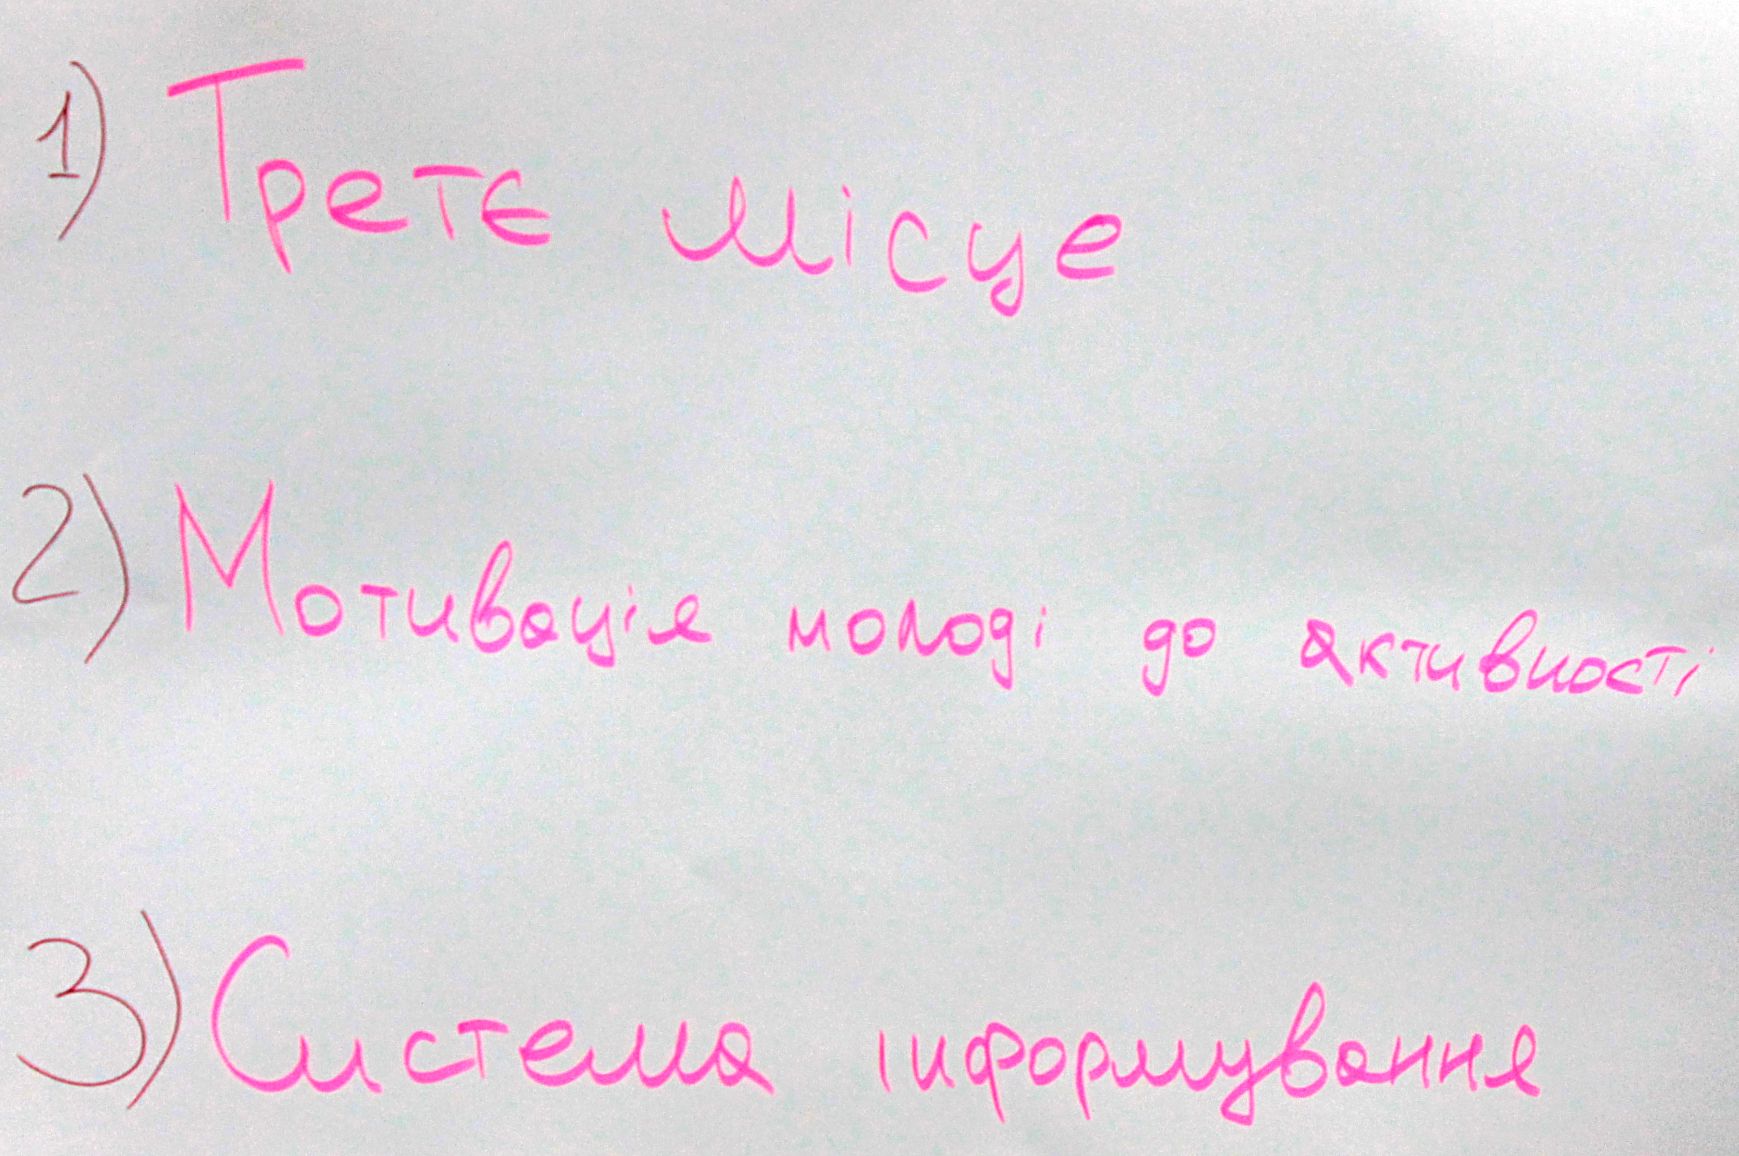 1) Третє місце
2) Мотивація молоді до активності
3) Система інформування